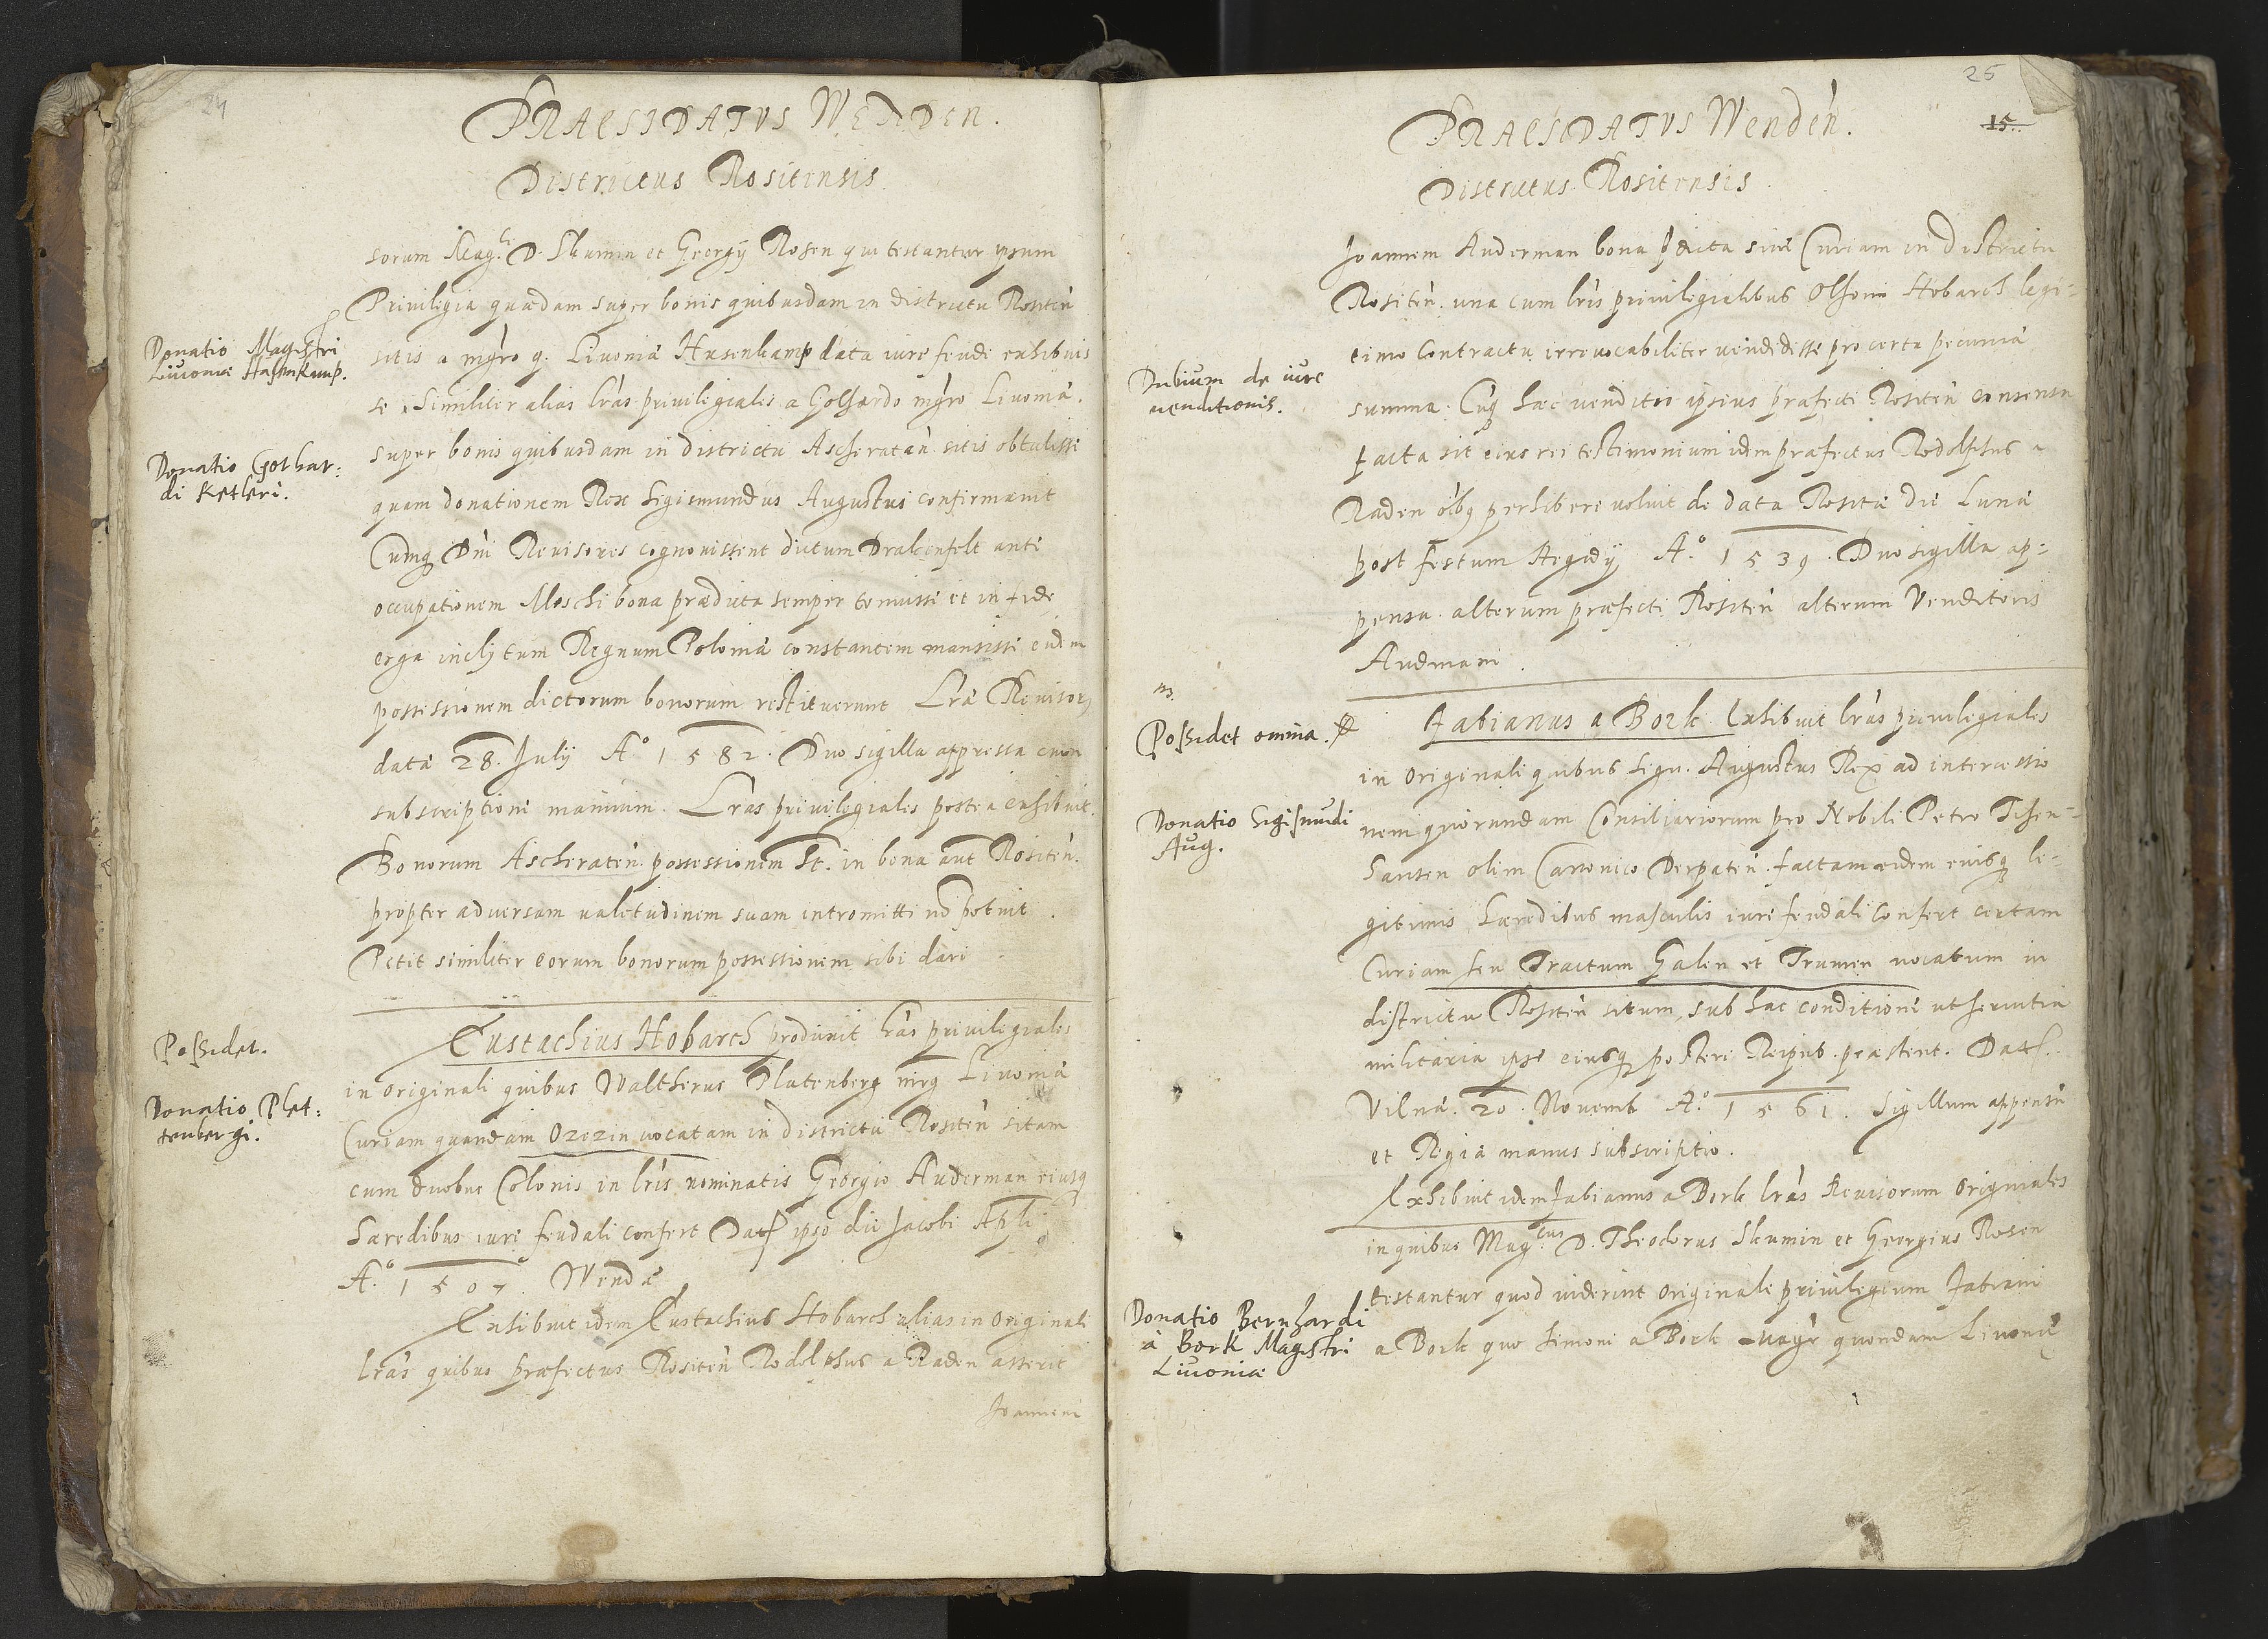 24
PRAESIDATVS WENDEN.
Districtus Rositensis.
sorum Mag.ci D. Skumin et Georgÿ Rosen qui testantur ipsum
Priuilegia quædam super bonis quibusdam in districtu Rositen̄
Donatio Magistri
Liuoniæ Hasenkamp.
sitis a mg̃ro q. Liuoniæ Hasenkamp data iure feudi exhibuis
se. Similiter alias lr̃as priuilegiales a Gothardo mg̃ro Liuoniæ.
Donatio Gothar:
di Ketleri.
super bonis quibusdam in districtu Ascheraten̄ sitis obtulisse
quam donationem Rex Sigismundus Augustus confirmauit
Cumq̃ Dn̄i Reuisores cognouissent dictum Drakenfelt ante
occupationem Moschi bona prædicta semper tenuisse et in fide
erga inclÿtum Regnum Poloniæ constantem mansisse eidem
possessionem dictorum bonorum restituerunt Lr̃æ Reuisorꝫ
datæ 28. Julÿ A.º 1582. Duo sigilla appressa cum
subscriptione manuum. Lr̃as priuilegiales postea exhibuit.
Bonorum Ascheraten̄. possessionem ht̄. in bona aut̄ Rositen̄.
propter aduersam ualetudinem suam intromitti nō potuit.
Petit similiter eorum bonorum possessionem sibi dari.
Possidet.
Eustachius Hobarch produxit lr̃as priuilegiales
in originali quibus Waltherus Platenberg mrg̃ Liuoniæ
Donatio Plet:
tenbergi.
Curiam quandam Ozezin uocatam in districtu Rositen̄ sitam
cum duobus Colonis in lr̃is nominatis Georgio Auderman eiusq̃
hæredibus iure feudali confert Dat̃ ipso die Jacobi Apl̄i
A.º 1507. Wendæ
Exhibuit idem Eustachius Hobarch alias in originali
lr̃as quibus præfectus Rositen̄ Rodolphus a Raden asserit
Joannem
25
15.
PRAESIDATVS Wenden̄.
Districtus Rositensis.
Joannem Auderman bona p̃dicta siue Curiam in districtu
Rositen̄. una cum lr̃is priuilegialibus Olhoni Hobarch legi=
timo Contractu irreuocabiliter uendidisse pro certa pecuniæ
Dubium de iure
uenditionis.
summa. Cuq̃ hæc uenditio ipsius præfecti Rositen̄ consensu
facta sit eius rei testimonium idem præfectus Rodolphus a
Raden oībꝰ perhibere uoluit de data Rositæ die Lunæ
post festum Aegidÿ A.º 1539. Duo sigilla ap=
pensa. alterum præfecti Rositen̄ alterum Venditoris
Audmani.
Possidet omnia.
Fabianus a Bork. Exhibuit lr̃as priuilegiales
in originali quibus Sigis. Augustus Rex ad intercessio
Donatio Sigismūdi
Aug.
nem quorundam Consiliariorum pro Nobili Petro Tisen=
hausen olim Canonico Derpaten̄. factam eidem eiusq̃ le=
gitimis hæredibus masculis iure feudali confert certam
Curiam seu Tractum Galen et Trumen uocatum in
districtu Rositen̄ situm, sub hac conditione ut seruitia
militaria ipse eiusq̃ posteri Reipub. præstent. Dat̃.
Vilnæ. 20. Nouemb A.º 1561. Sigillum appensū
et Regiæ manus subscriptio.
Exhibuit idem Fabianus a Bork lr̃as Reuisorum originales
in quibus Mag.cus D. Theodorus Skumin et Georgius Rosen
testantur quod uiderint originale priuilegium Fabiani
Donatio Bernhardi
à Bork Magistri
Liuoniæ
a Bork quo Simoni a Bork Magr̃ quondam Liuoniæ